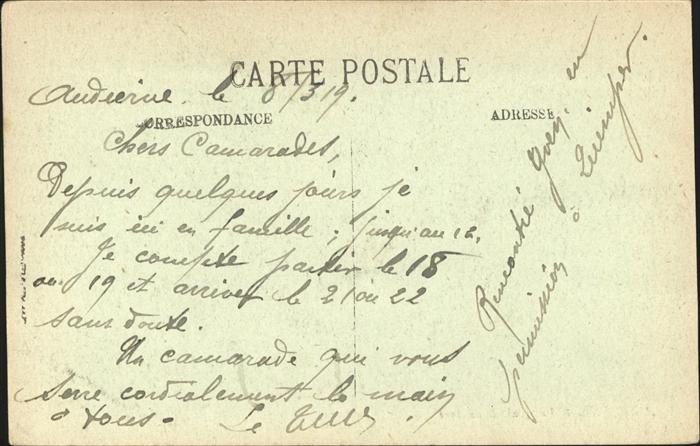 CARTE POSTALE
Audierne le 8/3 19.
CORRESPONDANCE
ADRESSE
Chers Camarades,
Depuis quelques jours je
suis ici en famille ; jusqu'au 12.
Je compte partir le 18
ou 19 et arriver le 21 ou 22
sans doute.
Un camarade qui vous
serre cordialement la main
à tous. Le
Rencontré en
permission à Quimper.